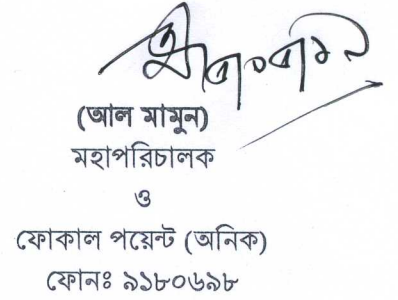 (আল মামুন)
মহাপরিচালক
ও
ফোকাল পয়েন্ট (অনিক)
ফোনঃ ৯১৮০৬৯৮